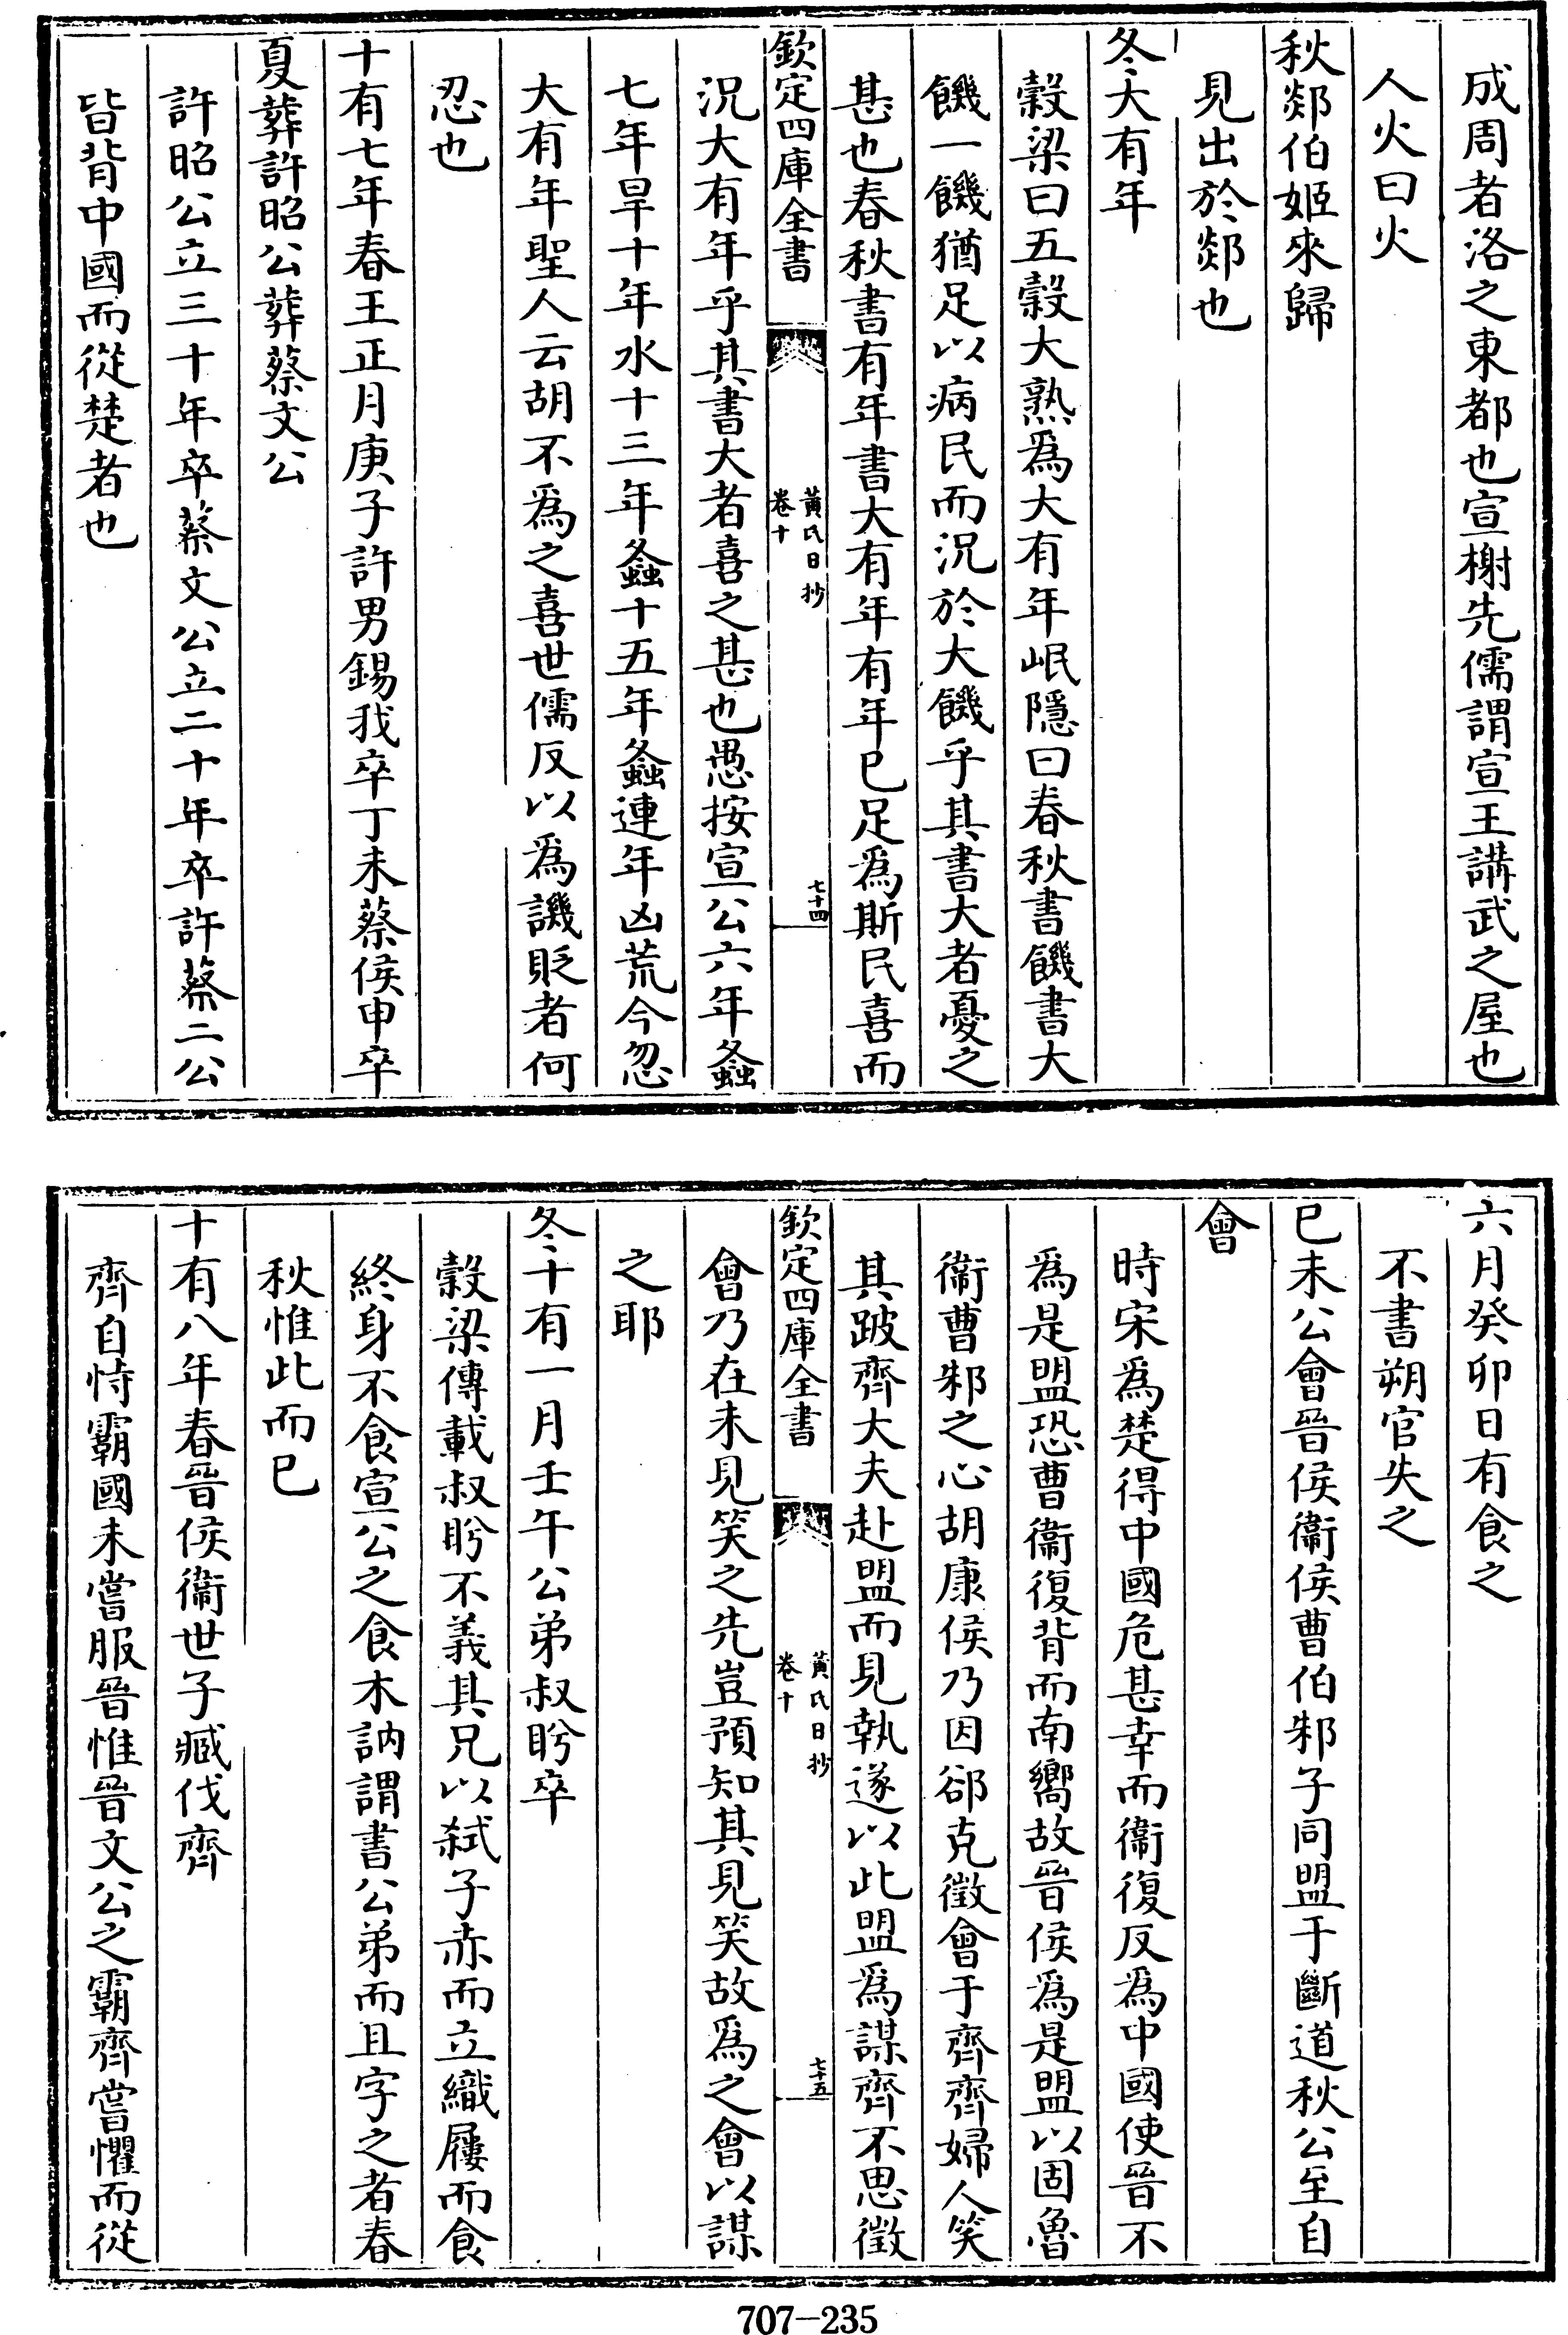 成周者洛之東都也宣榭先儒謂宣王講武之屋也
人火曰火
秋郯伯姬來歸
見出於郯也
冬大有年
穀梁曰五穀大熟爲大有年岷隱曰春秋書饑書大
饑一饑猶足以病民而況於大饑乎其書大者憂之
甚也春秋書有年書大有年有年已足爲斯民喜而
欽定四庫全書
黃氏日抄
卷十
七十四
況大有年乎其書大者喜之甚也愚按宣公六年螽
七年旱十年水十三年螽十五年螽連年凶荒今忽
大有年聖人云胡不爲之喜世儒反以爲譏貶者何
忍也
十有七年春王正月庚子許男錫我卒丁未蔡侯申卒
夏葬許昭公葬蔡文公
許昭公立三十年卒蔡文公立二十年卒許蔡二公
皆背中國而從楚者也
六月癸卯日有食之
不書朔官失之
已未公會晉侯衞侯曹伯邾子同盟于斷道秋公至自
會
時宋爲楚得中國危甚幸而衞復反爲中國使晉不
爲是盟恐曹衞復背而南嚮故晉侯爲是盟以固魯
衞曹邾之心胡康侯乃因郤克徵會于齊齊婦人笑
其跛齊大夫赴盟而見執遂以此盟爲謀齊不思徵
欽定四庫全書
黃氏日抄
卷十
七十五
會乃在未見笑之先豈預知其見笑故爲之會以謀
之耶
冬十有一月壬午公弟叔肹卒
穀梁傳載叔肹不義其兄以弒子赤而立織屨而食
終身不食宣公之食木訥謂書公弟而且字之者春
秋惟此而已
十有八年春晉侯衞世子臧伐齊
齊自恃霸國未嘗服晉惟晉文公之霸齊嘗懼而從
707-235